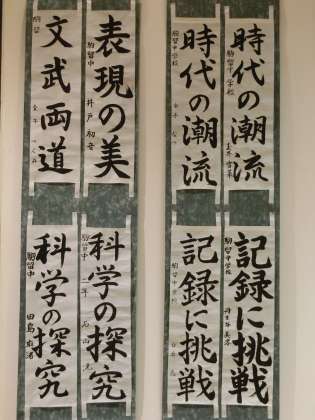 時代の潮流
駒留中学校
時代の潮流
駒留中学校
表現の美
駒留中
井戸
文武両道
駒留
記録に挑戦
駒留中学校
記録に挑戦
駒留中学校
科学の探究
駒留中
石山
科学の探究
駒留中
田島